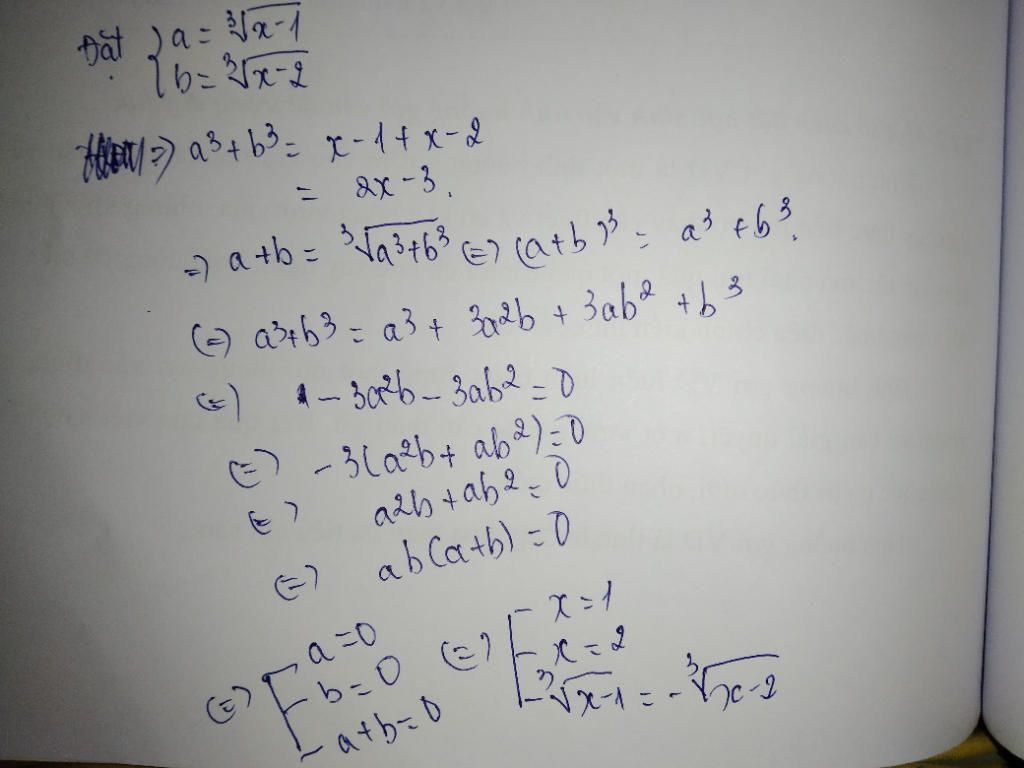 Đặt { a = ∛(x-1)
b = ∛(x-2)
=> a³ + b³ = x - 1 + x - 2
= 2x - 3.
=> a + b = ∛(a³+b³) (=) (a+b)³ = a³ + b³.
(=) a³+b³ = a³ + 3a²b + 3ab² + b³
(=) - 3a²b - 3ab² = 0
(=) - 3(a²b + ab²) = 0
(=) a²b + ab² = 0
(=) ab(a+b) = 0
(=) [ a = 0 (=) [ x = 1
b = 0 x = 2
a + b = 0 ∛(x-1) = - ∛(x-2)